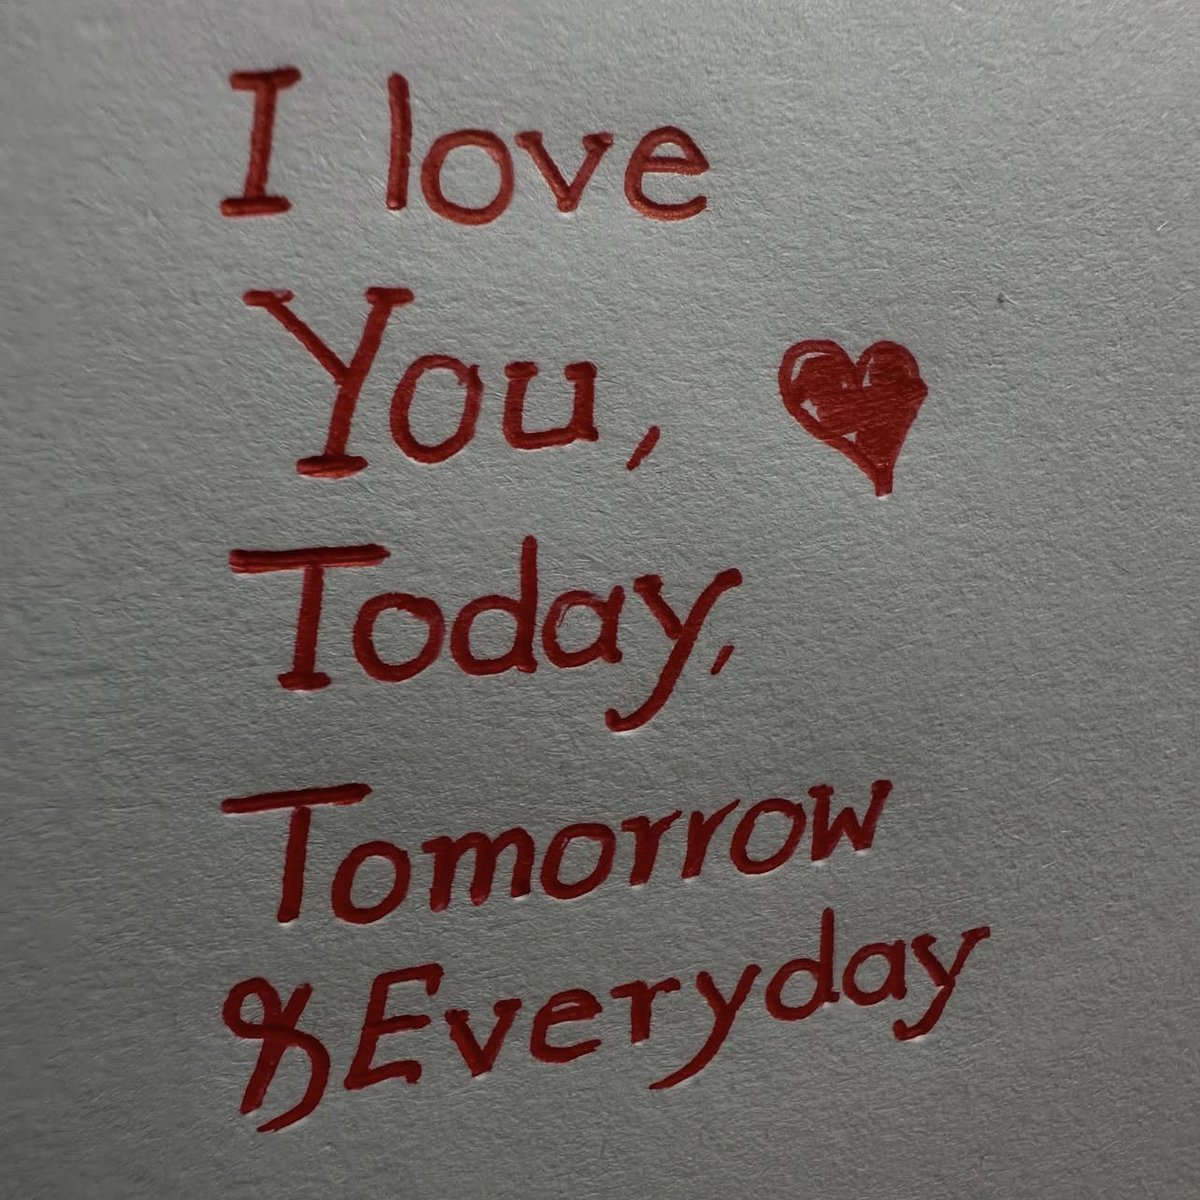 I love
You,
Today,
Tomorrow
& Everyday